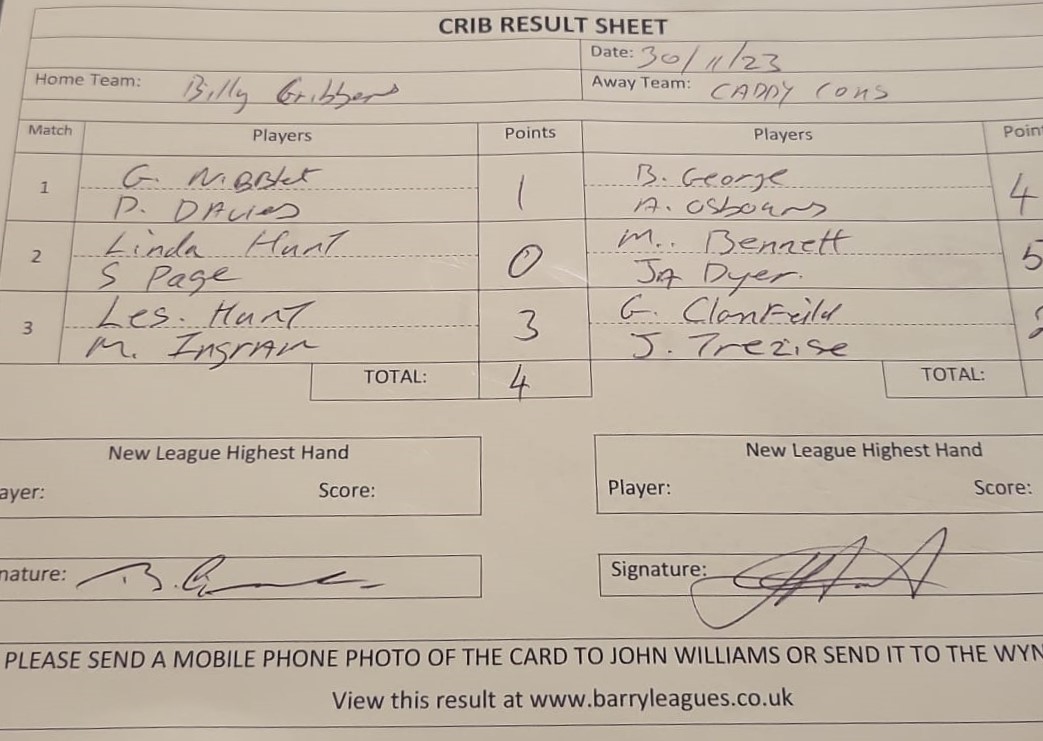 CRIB RESULT SHEET
Date: 30/11/23
Home Team: Billy Gribbens Away Team: CADDY CONS
Match Players Points Players Poin
1 G. NiBBlet 1 B. George 4
D. DAvies A. Osbourns
2 Linda Hunt 0 M.. Bennett 5
S Page JA Dyer.
3 Les. Hunt 3 G. Clankeild 2
M. INgrAm J. Trezise
TOTAL: 4 TOTAL:
New League Highest Hand New League Highest Hand
ayer: Score: Player: Score:
nature: Signature:
PLEASE SEND A MOBILE PHONE PHOTO OF THE CARD TO JOHN WILLIAMS OR SEND IT TO THE WYN
View this result at www.barryleagues.co.uk